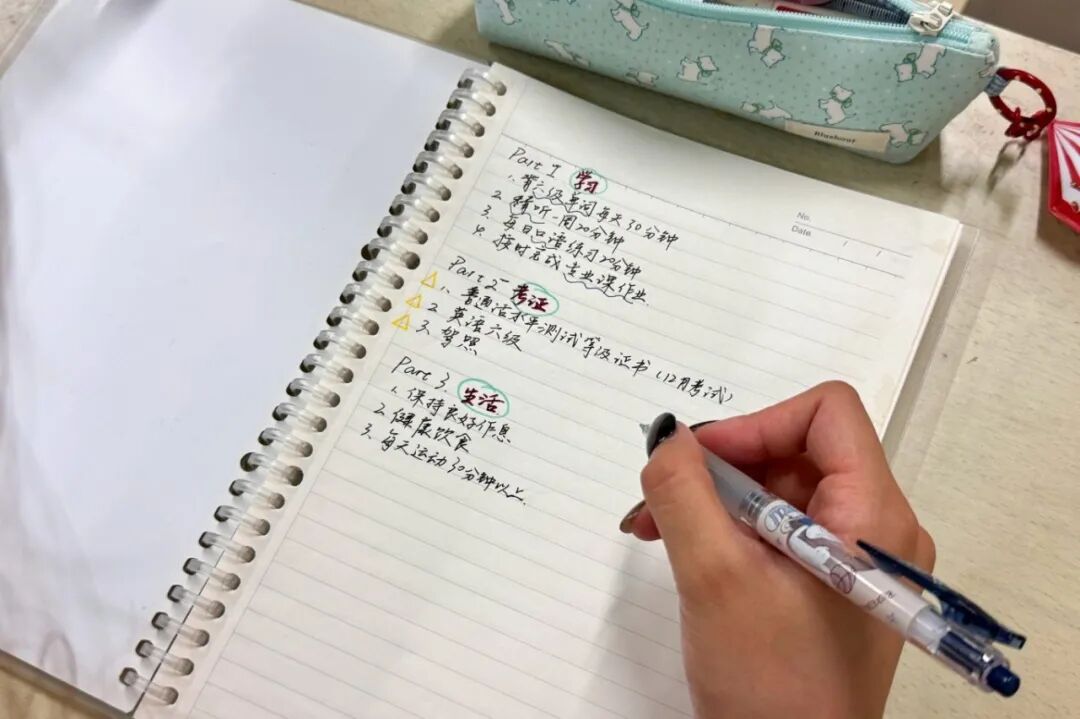 Part 1 学习
1. 背六级单词每天30分钟
2. 精听一周20分钟
3. 每日口语练习20分钟
4. 按时完成专业课作业
Part 2 考证
1. 普通话水平测试等级证书（12月考试）
2. 英语六级
3. 驾照
Part 3 生活
1. 保持良好作息
2. 健康饮食
3. 每天运动30分钟以上.
No.
Date